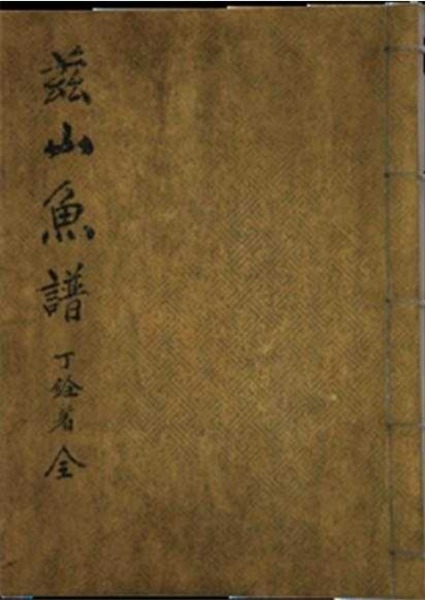 茲山魚譜 丁銓著 全